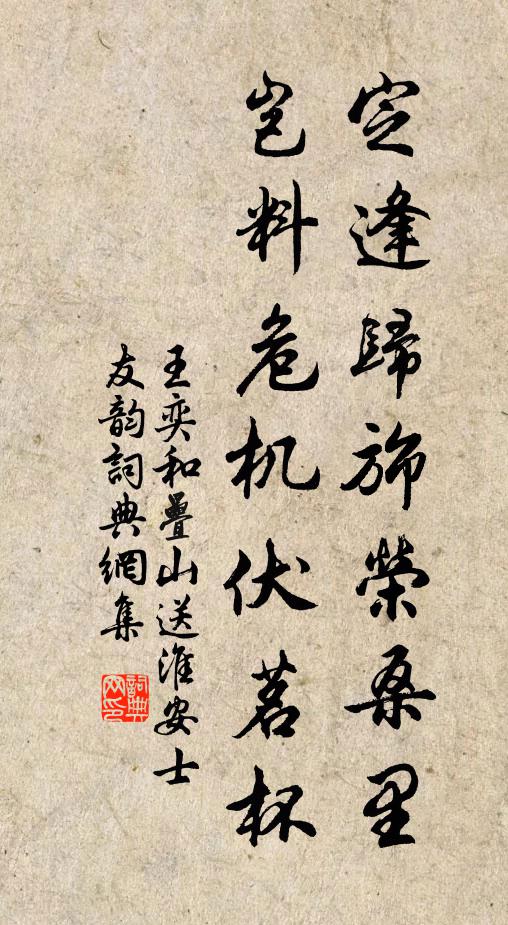 定逢歸旆榮桑里
豈料危机伏茗杯
王奕和疊山送淮安士
友韵詞典網集
詞典
网印